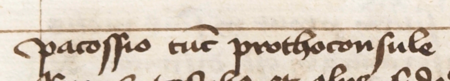 pacossio tuc̄ prothoconsule